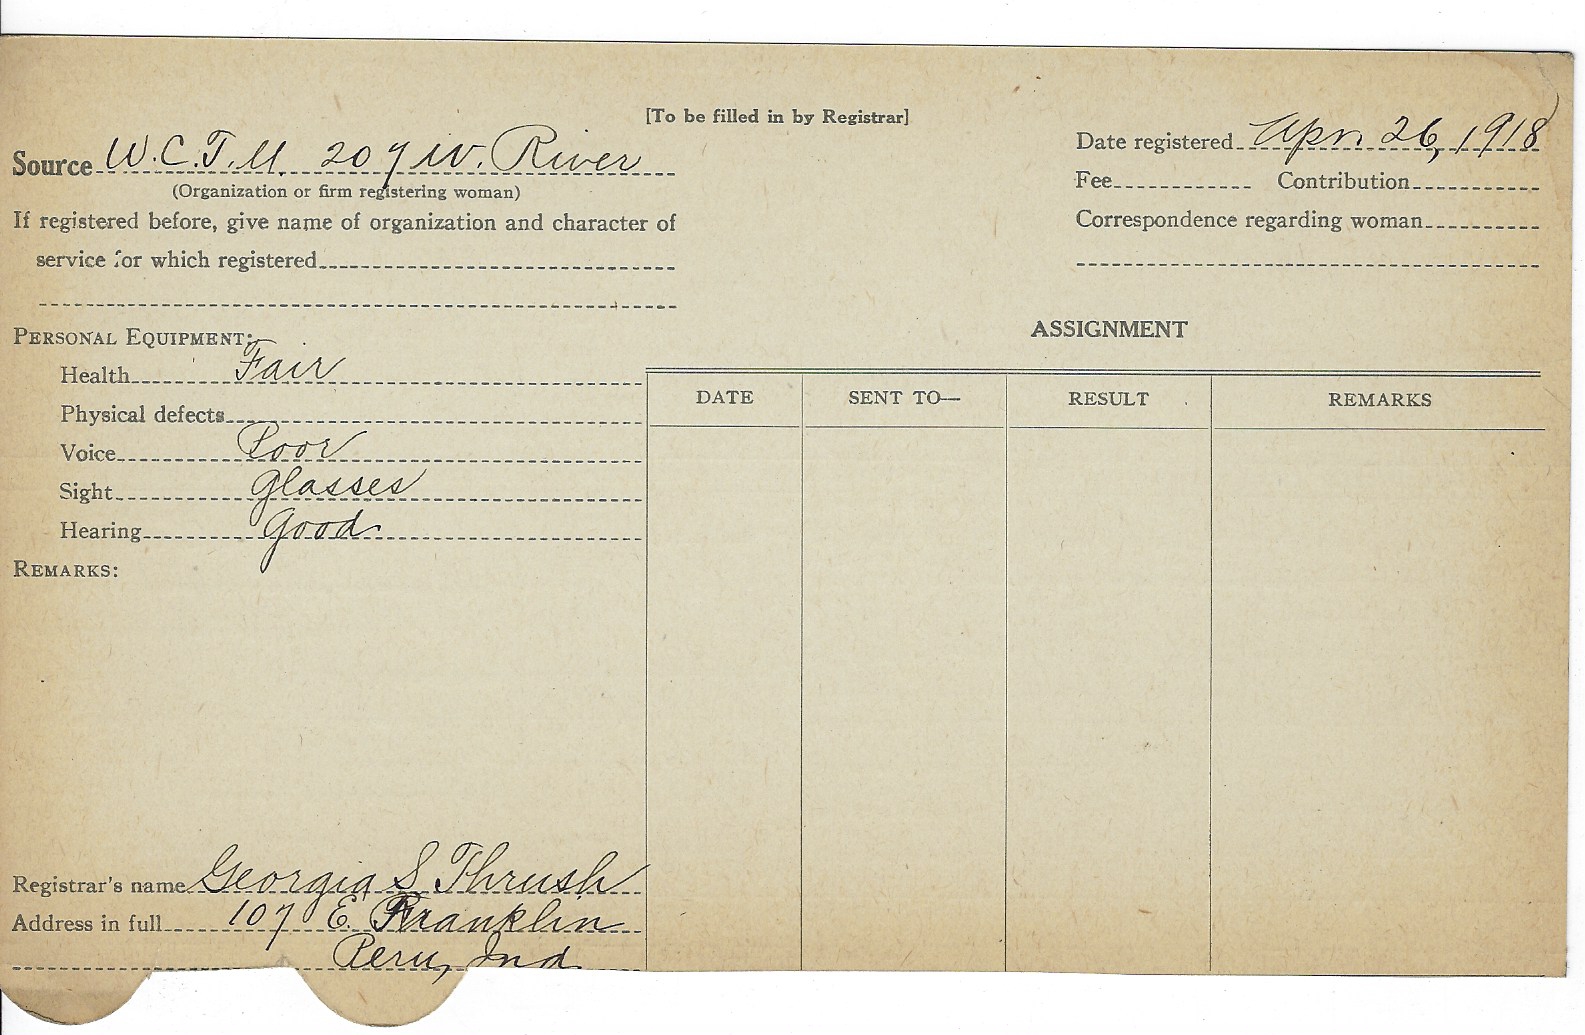 [To be filled in by Registrar]
Source W.C.T.U. 207 W. River
(Organization or firm registering woman)
If registered before, give name of organization and character of
service for which registered
Date registered Apr. 26, 1918
Fee Contribution
Correspondence regarding woman
PERSONAL EQUIPMENT:
Health Fair
Physical defects
Voice Poor
Sight Glasses
Hearing Good
REMARKS:
ASSIGNMENT
DATE SENT TO— RESULT REMARKS
Registrar's name Georgia S Thrush
Address in full 107 E. Franklin
Peru, Ind